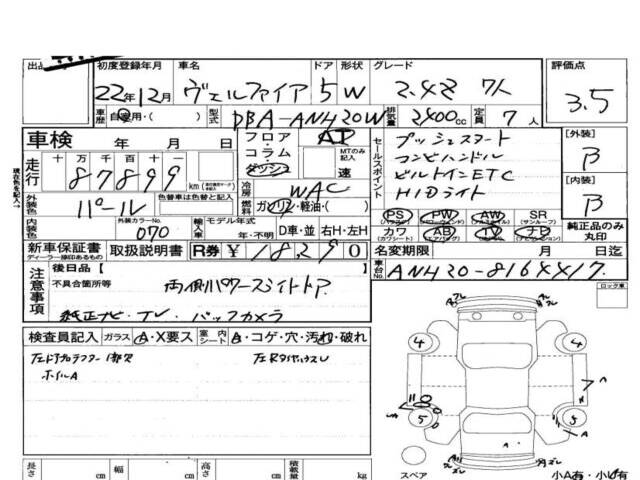 初度登録年月 車名 ドア 形状 グレード 評価点
22年12月 ヴェルファイア 5 W 2.4Z 7人 3.5
車歴 自家用・( ) 型式 DBA-ANH20W 排気量 2400cc 定員 7人
車検 年 月 日
フロア コラム AT MTのみ記入 速
セールスポイント プッシュスタート
コンビハンドル
ビルトインETC
HIDライト
[外装] B
[内装] B
走行 十 万 千 百 十 一
87899 km
冷房 WAC
燃料 ガソリン・軽油・( )
外装色 パール 色替車は色替と記入
内装色 外装カラーNo. 070 輸入車 モデル年式 年・不明 D車・並 右H・左H
PS PW AW SR
カワ AB TV ナビ
純正品のみ丸印
新車保証書 取扱説明書 R券 ¥18290
ディーラー捺印あるもの
名変期限 月 日迄
車台No. ANH20-8164417
注意事項 後日品[ ]
不具合箇所等 両側パワースライドドア
純正ナビ・TV・バックカメラ
ロック車
検査員記入 ガラス A・X要ス 室内 シート A・コゲ・穴・汚れ・破れ
ホイルA
4 4
5 5
スペア
長さ cm 幅 cm 高さ cm 積載量 kg
小A有・小U有